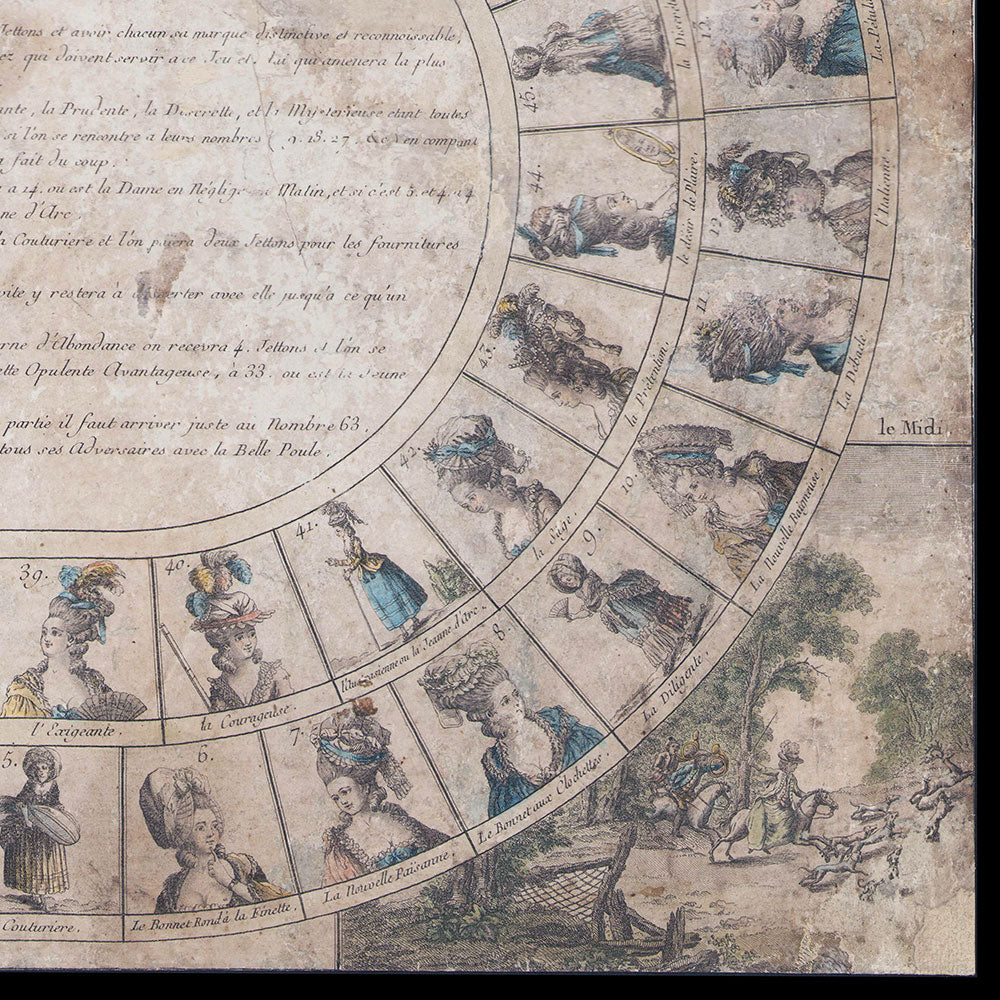 Jettons et avoir chacun sa marque distinctive et reconnoissable,
qui doivent servir a ce Jeu et. lui qui amenera la plus
la Prudente, la Discrette, et la Mysterieuse etant toutes
si l'on se rencontre a leurs nombres 9. 18. 27. &c. en
fait du coup.
a 14. ou est la Dame en Matin, et si c'est 5. et 4. a 4
d'Arc.
Couturiere et l'on paiera deux Jettons pour les fournitures
y restera à avec elle jusqu'a ce qu'un
d'Abondance on recevra 4. Jettons et l'on se
Opulente Avantageuse, à 33. ou est la Jeune
partie il faut arriver juste au Nombre 63.
tous ses Adversaires avec la Belle Poule.
45.
la
44.
le desir de Plaire.
43.
la Prétention.
42.
la Sage.
41.
ou la Jeanne d'Arc.
40.
la Courageuse.
39.
l'Exigeante.
12.
l'Italienne.
11.
10.
9.
La Diligente.
8.
Le Bonnet aux Clochettes.
7.
La Nouvelle Païsanne.
6.
Le Bonnet Rond à la Finette.
5.
Couturiere.
le Midi.